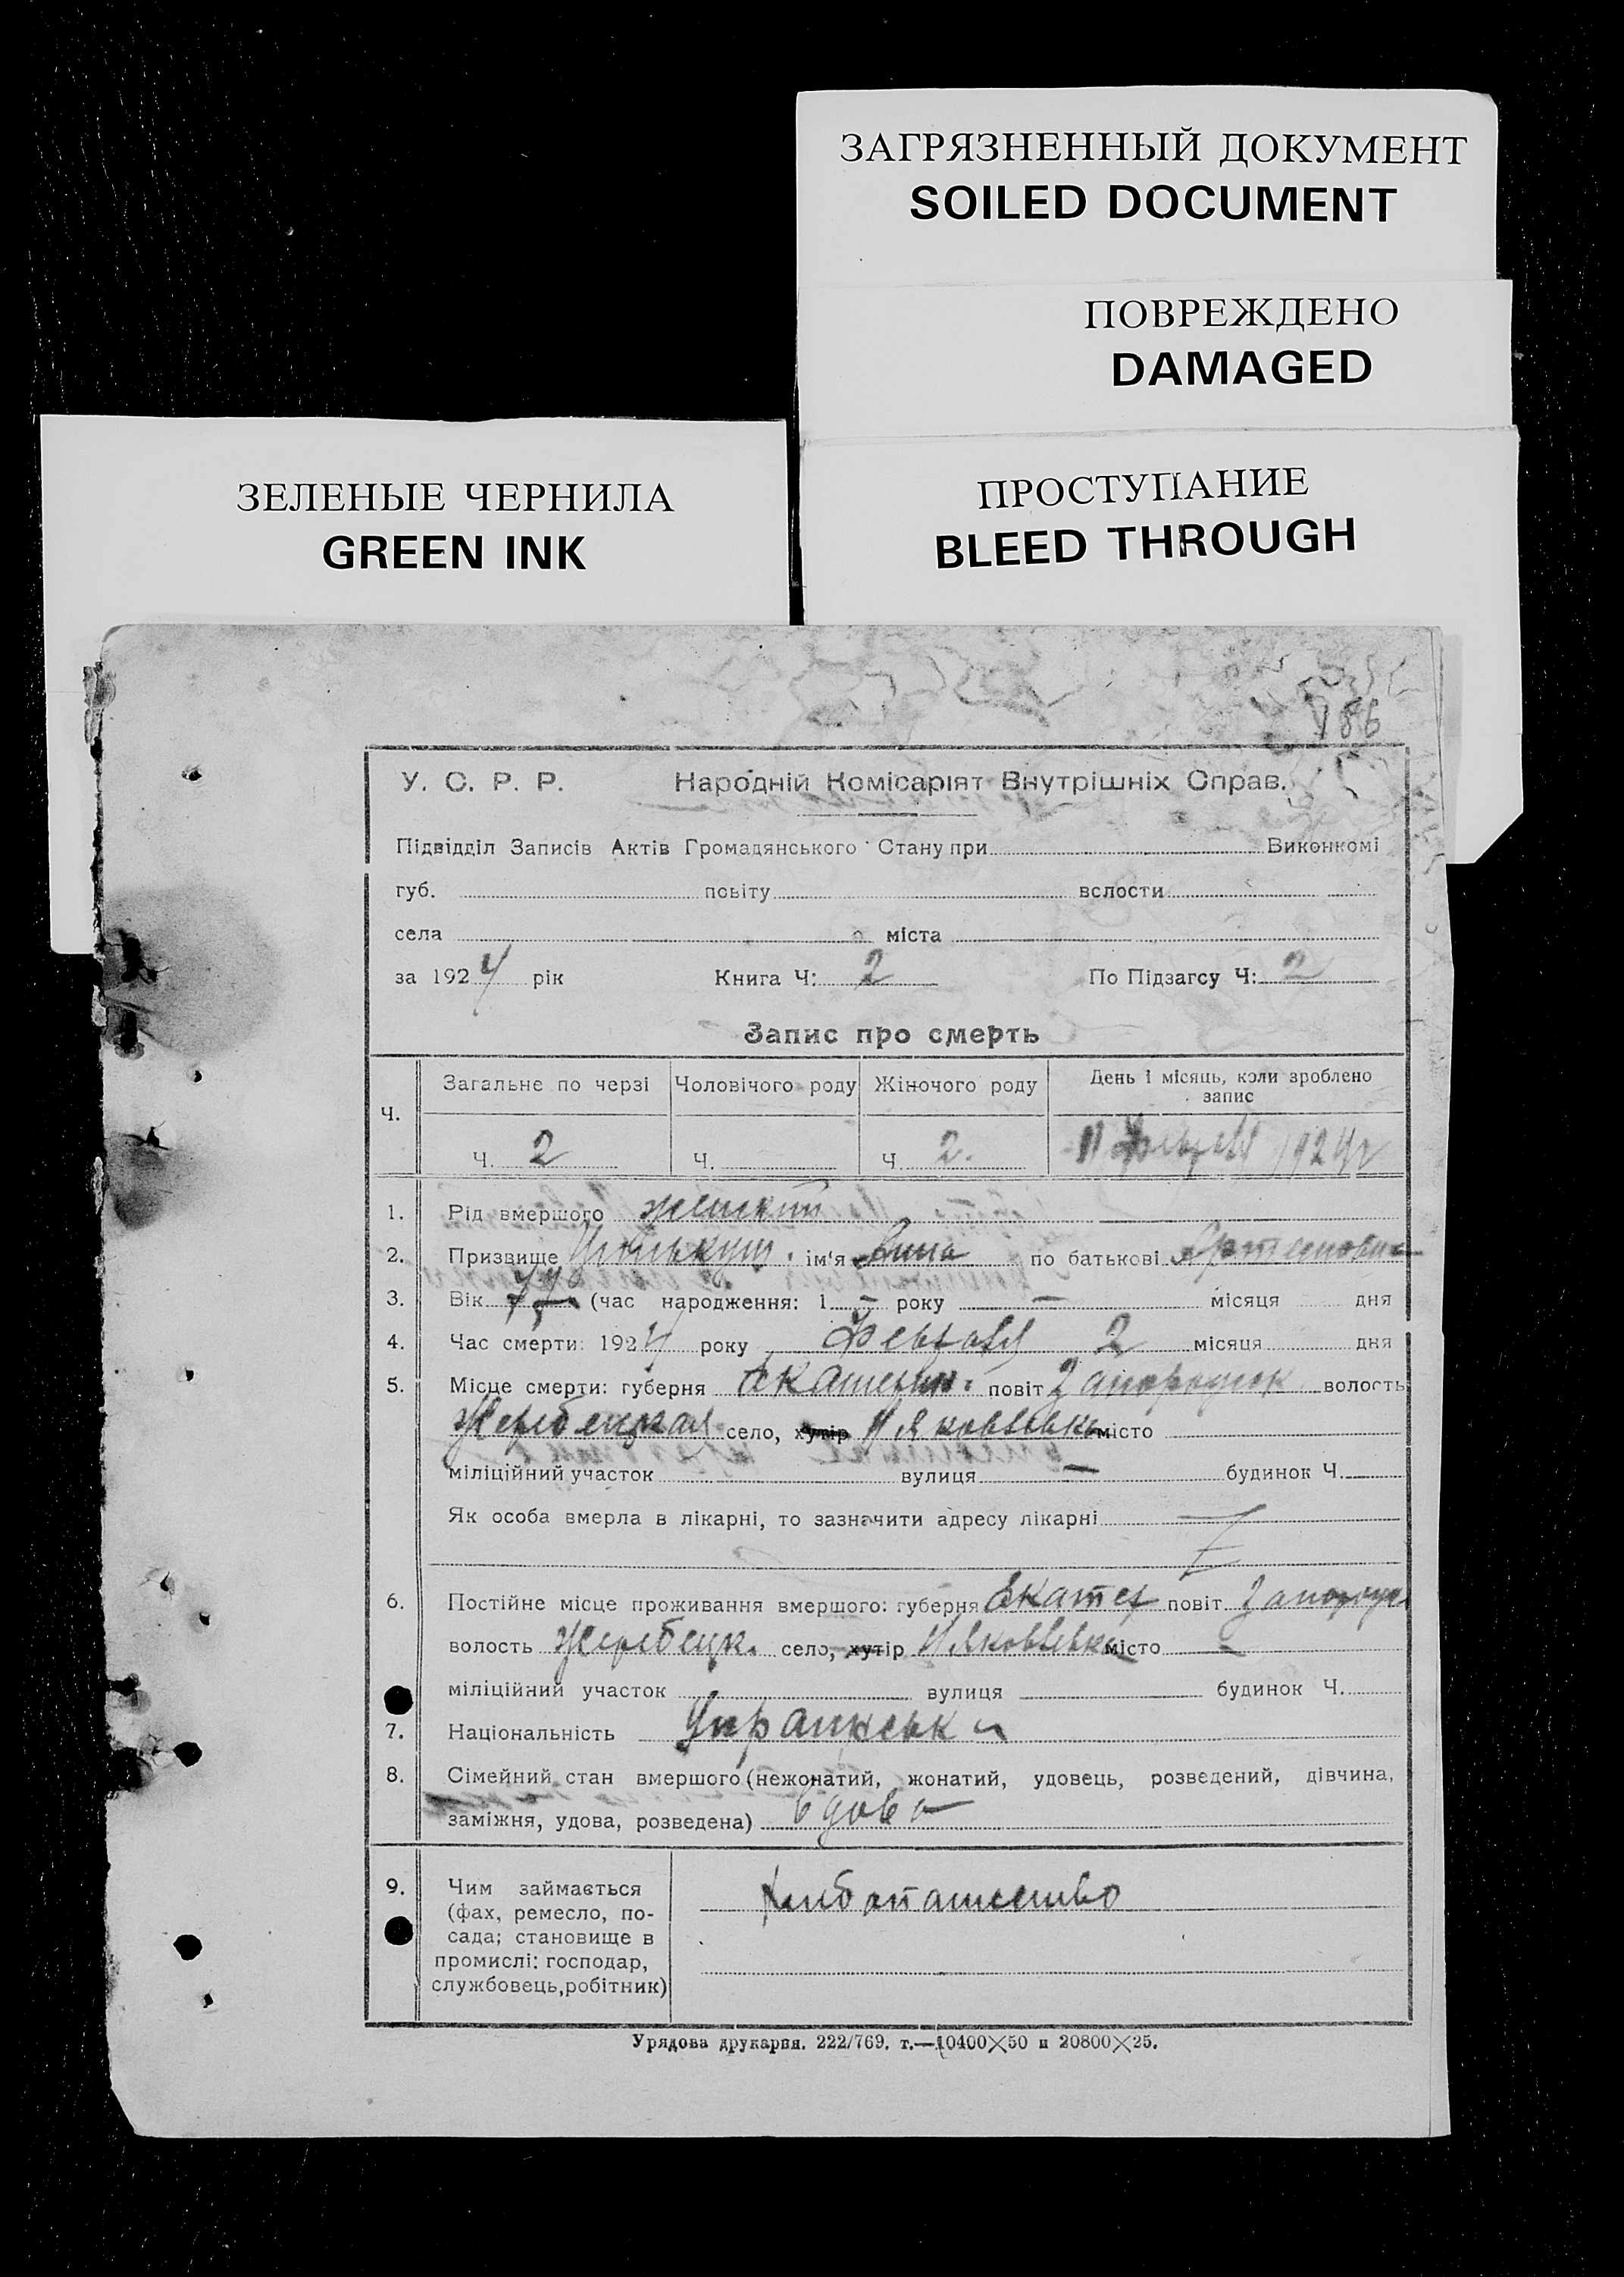 ЗАГРЯЗНЕННЫЙ ДОКУМЕНТ
SOILED DOCUMENT
ПОВРЕЖДЕНО
DAMAGED
ЗЕЛЕНЫЕ ЧЕРНИЛА
GREEN INK
ПРОСТУПАНИЕ
BLEED THROUGH
186
У. С. Р. Р. Народній Комісаріят Внутрішніх Справ.
Підвідділ Записів Актів Громадянського Стану при Виконкомі
губ. повіту волости
села міста
за 1924 рік Книга Ч: 2 По Підзагсу Ч: 2
Запис про смерть
Ч. Загальне по черзі Чоловічого роду Жіночого роду День і місяць, коли зроблено запис
Ч. 2 Ч. Ч. 2. 1924 г
1. Рід вмершого женский
2. Призвище ім'я Анна по батькові Артемовна
3. Вік (час народження: 1 — року — місяця дня
4. Час смерти: 1924 року Февраля 2 місяця дня
5. Місце смерти: губернія Екатерин. повіт Запорожск волость
Жеребецкая село, хутір Н Яковлевка місто
міліційний участок вулиця — будинок Ч.
Як особа вмерла в лікарні, то зазначити адресу лікарні
6. Постійне місце проживання вмершого: губерня Екатер повіт
волость Жеребецк. село, хутір Н Яковлевка місто —
міліційний участок вулиця будинок Ч.
7. Національність Украинська
8. Сімейний стан вмершого (нежонатий, жонатий, удовець, розведений, дівчина,
заміжня, удова, розведена) вдова
9. Чим займається
(фах, ремесло, по-
сада; становище в
промислі: господар,
службовець, робітник)
хлібопашество
Урядова друкарня. 222/769. т.—10400×50 и 20800×25.